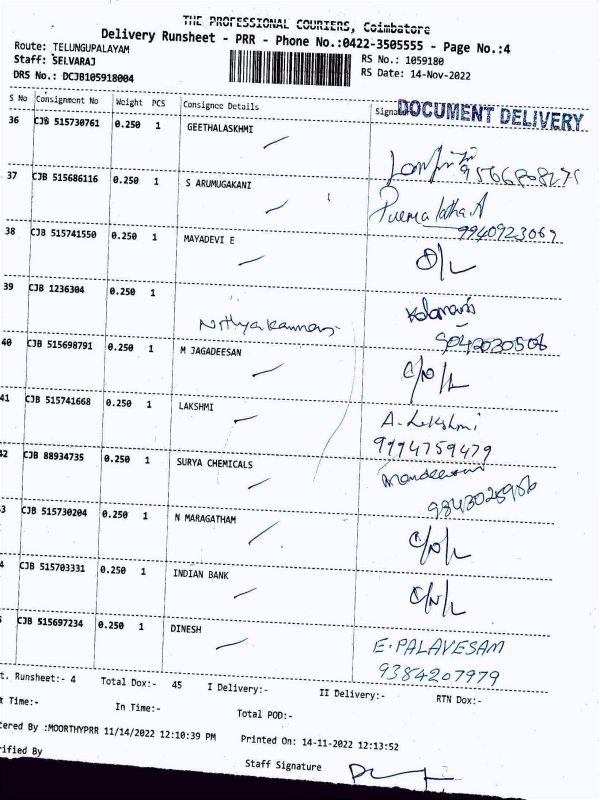 THE PROFESSIONAL COURIERS, Coimbatore
Delivery Runsheet - PRR - Phone No.:0422-3505555 - Page No.:4
Route: TELUNGUPALAYAM
Staff: SELVARAJ
DRS No.: DCJB105918004
RS No.: 1059180
RS Date: 14-Nov-2022
S No Consignment No Weight PCS Consignee Details
DOCUMENT DELIVERY
36 CJB 515730761 0.250 1 GEETHALASKHMI
37 CJB 515686116 0.250 1 S ARUMUGAKANI
9940923069
38 CJB 515741550 0.250 1 MAYADEVI E
D/L
39 CJB 1236304 0.250 1
9042030506
40 CJB 515698791 0.250 1 M JAGADEESAN
C/N/L
41 CJB 515741668 0.250 1 LAKSHMI A. Lekshmi
9994759479
42 CJB 88934735 0.250 1 SURYA CHEMICALS
3 CJB 515730204 0.250 1 N MARAGATHAM
C/N/L
4 CJB 515703331 0.250 1 INDIAN BANK
C/N/L
CJB 515697234 0.250 1 DINESH
E. PALAVESAM
9384207979
t. Runsheet:- 4 Total Dox:- 45 I Delivery:- II Delivery:- RTN Dox:-
t Time:- In Time:- Total POD:-
ered By :MOORTHYPRR 11/14/2022 12:10:39 PM Printed On: 14-11-2022 12:13:52
rified By Staff Signature